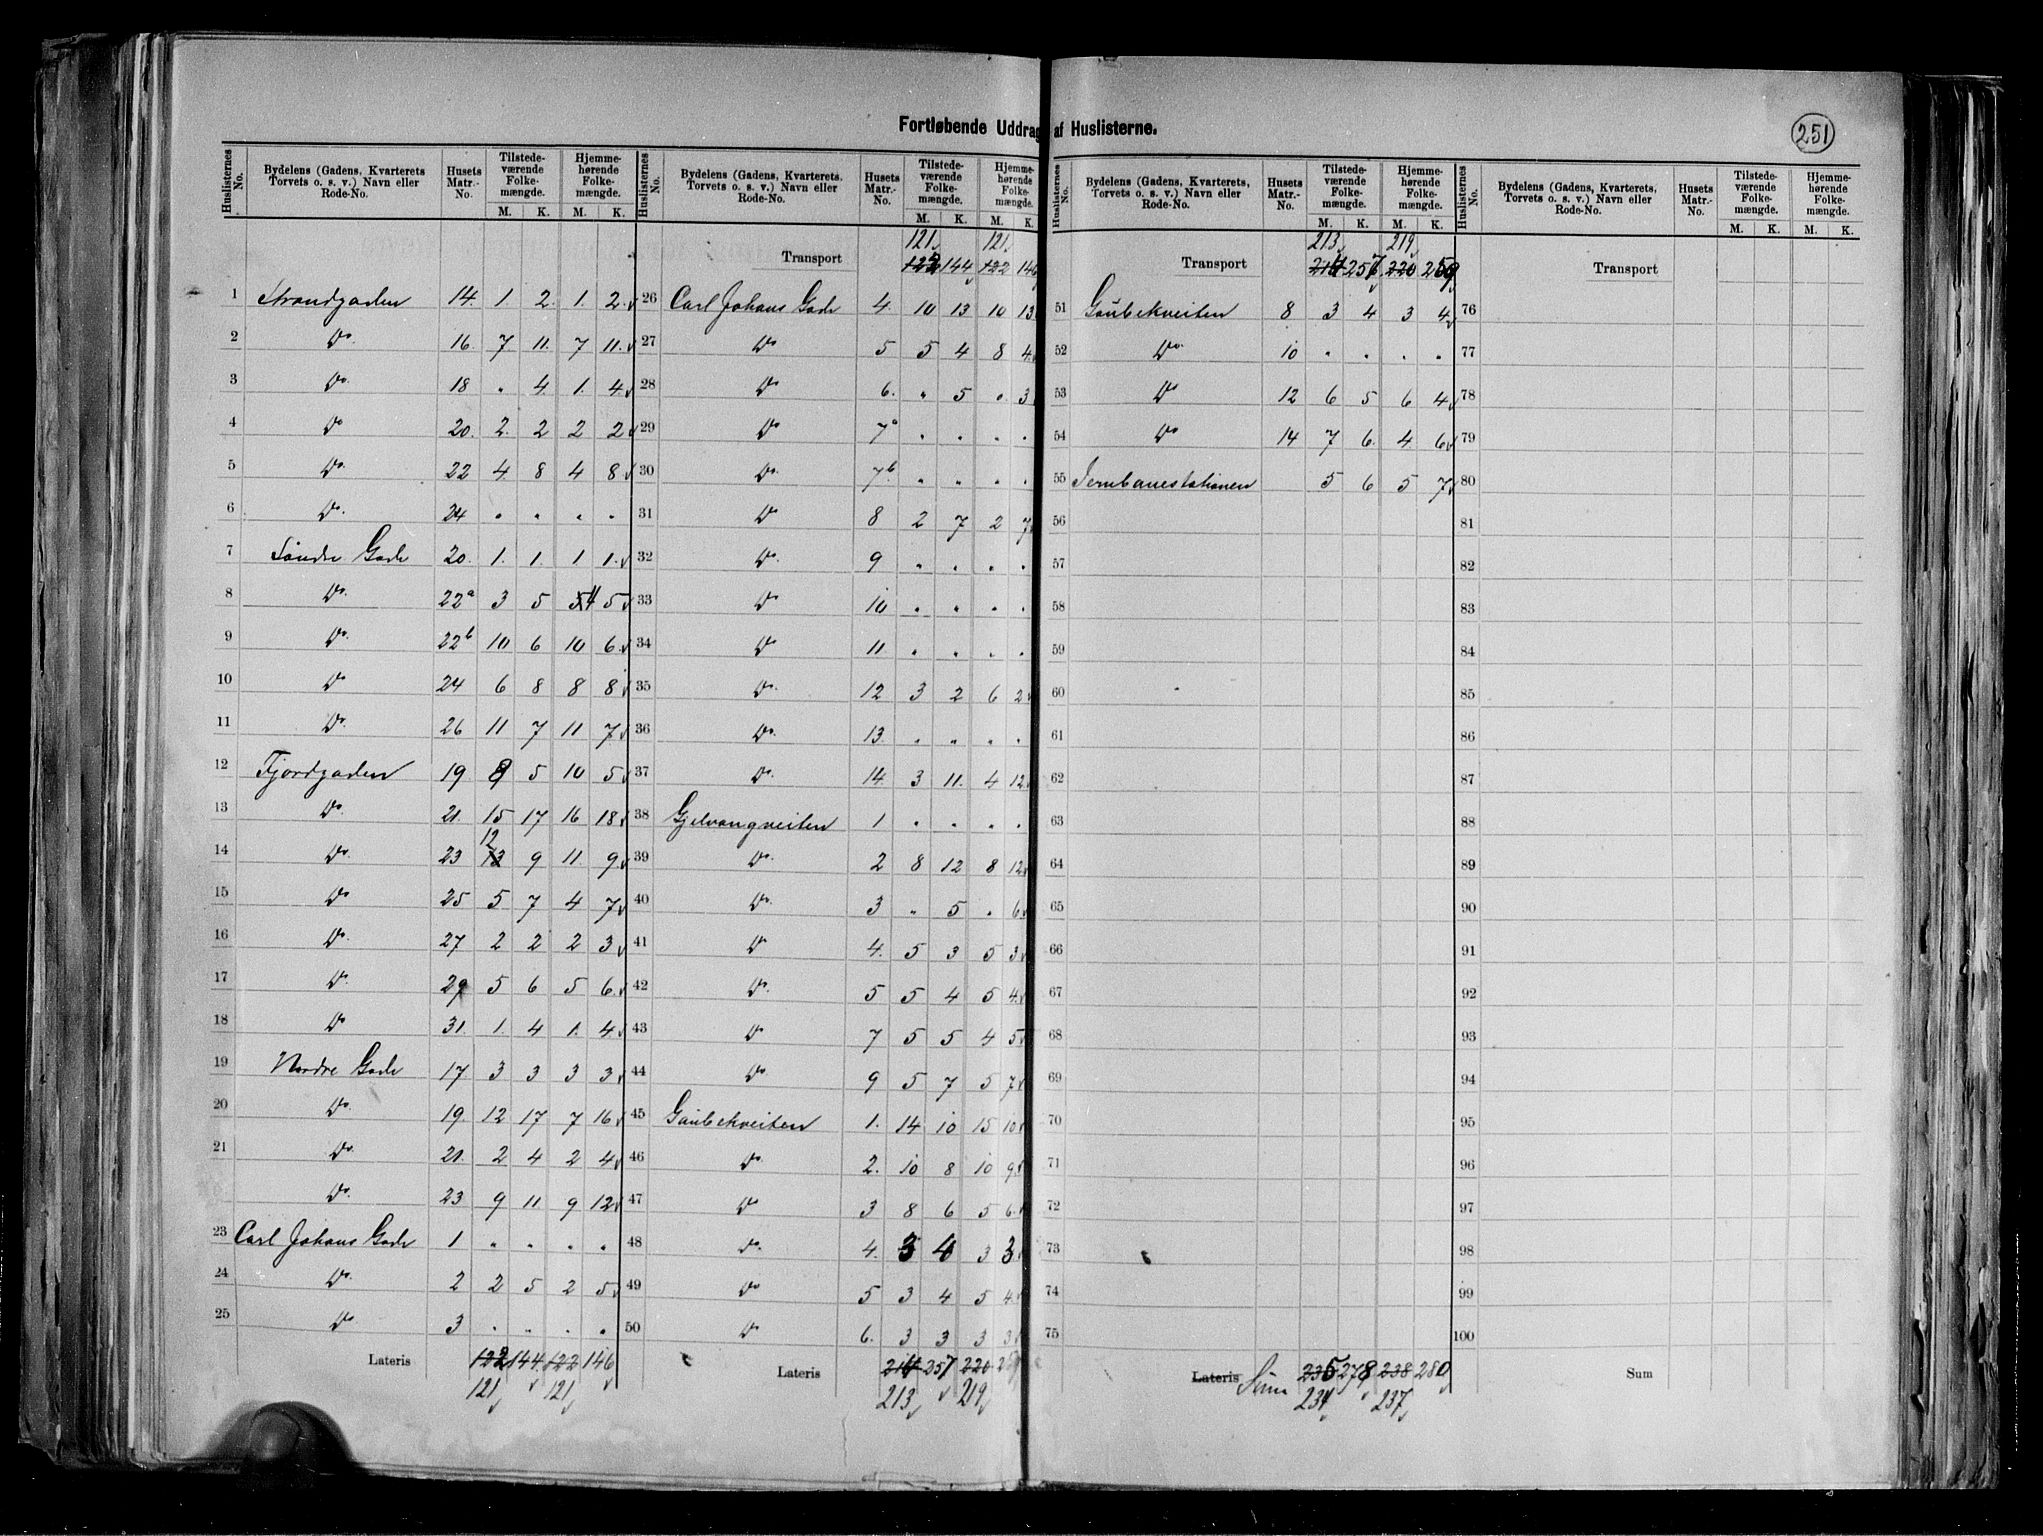 Fortløbende Uddrag af Huslisterne.
251
Huslisternes No. | Bydelens (Gadens, Kvarterets, Torvets o. s. v.) Navn eller Rode-No. | Husets Matr.-No. | Tilstedeværende Folkemængde. M. K. | Hjemmehørende Folkemængde. M. K.
1 Strandgaden 14. 1. 2. 1. 2.
2 Do. 16. 7. 11. 7 11.
3 Do. 18 " 4. 1. 4.
4 Do 20. 2. 2 2 2
5 Do. 22 4. 8 4 8
6 Do. 24 " " " "
7 Søndre Gade 20. 1. 1. 1 1.
8 Do. 22a 3 5 4 5
9 Do. 22b 10 6 10 6
10 Do 24 6 8 8 8
11 Do. 26 11 7 11 7
12 Fjordgaden 19 9 5 10 5
13 Do. 21. 15 17 16 18
14 Do. 23 12 9 11. 9
15 Do 25 5 7 4 7
16 Do. 27 2 2 2 3
17 Do. 29 5 6 5 6
18 Do 31. 1. 4 1. 4
19 Nordre Gade 17 3 3 3 3
20 Do. 19. 12 17 7 16
21 Do. 21. 2 4 2 4
Do. 23 9 11 9 12
23 Carl Johans Gade 1 " " " "
24 Do. 2 2 5 2 5
25 Do 3 " " " "
Lateris 122 144 122 146
121 121
Huslisternes No. | Bydelens (Gadens, Kvarterets, Torvets o. s. v.) Navn eller Rode-No. | Husets Matr.-No. | Tilstedeværende Folkemængde. M. K. | Hjemmehørende Folkemængde. M. K.
121 121
Transport 122 144 122 146
26 Carl Johans Gade 4. 10 13 10 13
27 Do 5 5 4 8 4
28 Do 6. " 5 " 3
29 Do 7a " " " "
30 Do. 7b " " " "
31 Do 8 2 7 2 7
32 Do. 9 " " " "
33 Do 10 " " " "
34 Do 11. " " " "
35 Do. 12 3 2 6 2
36 Do. 13. " " " "
37 Do. 14. 3 11. 4 12
38 Gjelvangveiten 1 " " " "
39 Do. 2 8 12 8 12
40 Do. 3 " 5 " 6
41 Do 4. 5 3 5 3
42 Do. 5 5 4 5 4
43 Do 7 5 5 4 5
44 Do 9 5 7 5 7
45 Gaubekveiten 1. 14 10 15 10
46 Do. 2. 10 8 10 9
47 Do 3 8 6 5 6
48 Do. 4. 3 4 3 3
49 Do 5 3 4 5 4
50 Do 6. 3 3 3 3
Lateris 214 257 220 259
213 219
Huslisternes No. | Bydelens (Gadens, Kvarterets, Torvets o. s. v.) Navn eller Rode-No. | Husets Matr.-No. | Tilstedeværende Folkemængde. M. K. | Hjemmehørende Folkemængde. M. K.
213 219
Transport 214 257 220 259
51 Gaubekveiten 8 3 4 3 4
52 Do. 10 " " " "
53 Do 12 6 5 6 4
54 Do 14 7 6. 4 6
55 Jernbanestationen 5 6 5 7
56
57
58
59
60
61
62
63
64
65
66
67
68
69
70
71
72
73
74
75
Lateris Sum 235 278 238 280
234 237
Huslisternes No. | Bydelens (Gadens, Kvarterets, Torvets o. s. v.) Navn eller Rode-No. | Husets Matr.-No. | Tilstedeværende Folkemængde. M. K. | Hjemmehørende Folkemængde. M. K.
Transport
76
77
78
79
80
81
82
83
84
85
86
87
88
89
90
91
92
93
94
95
96
97
98
99
100
Sum